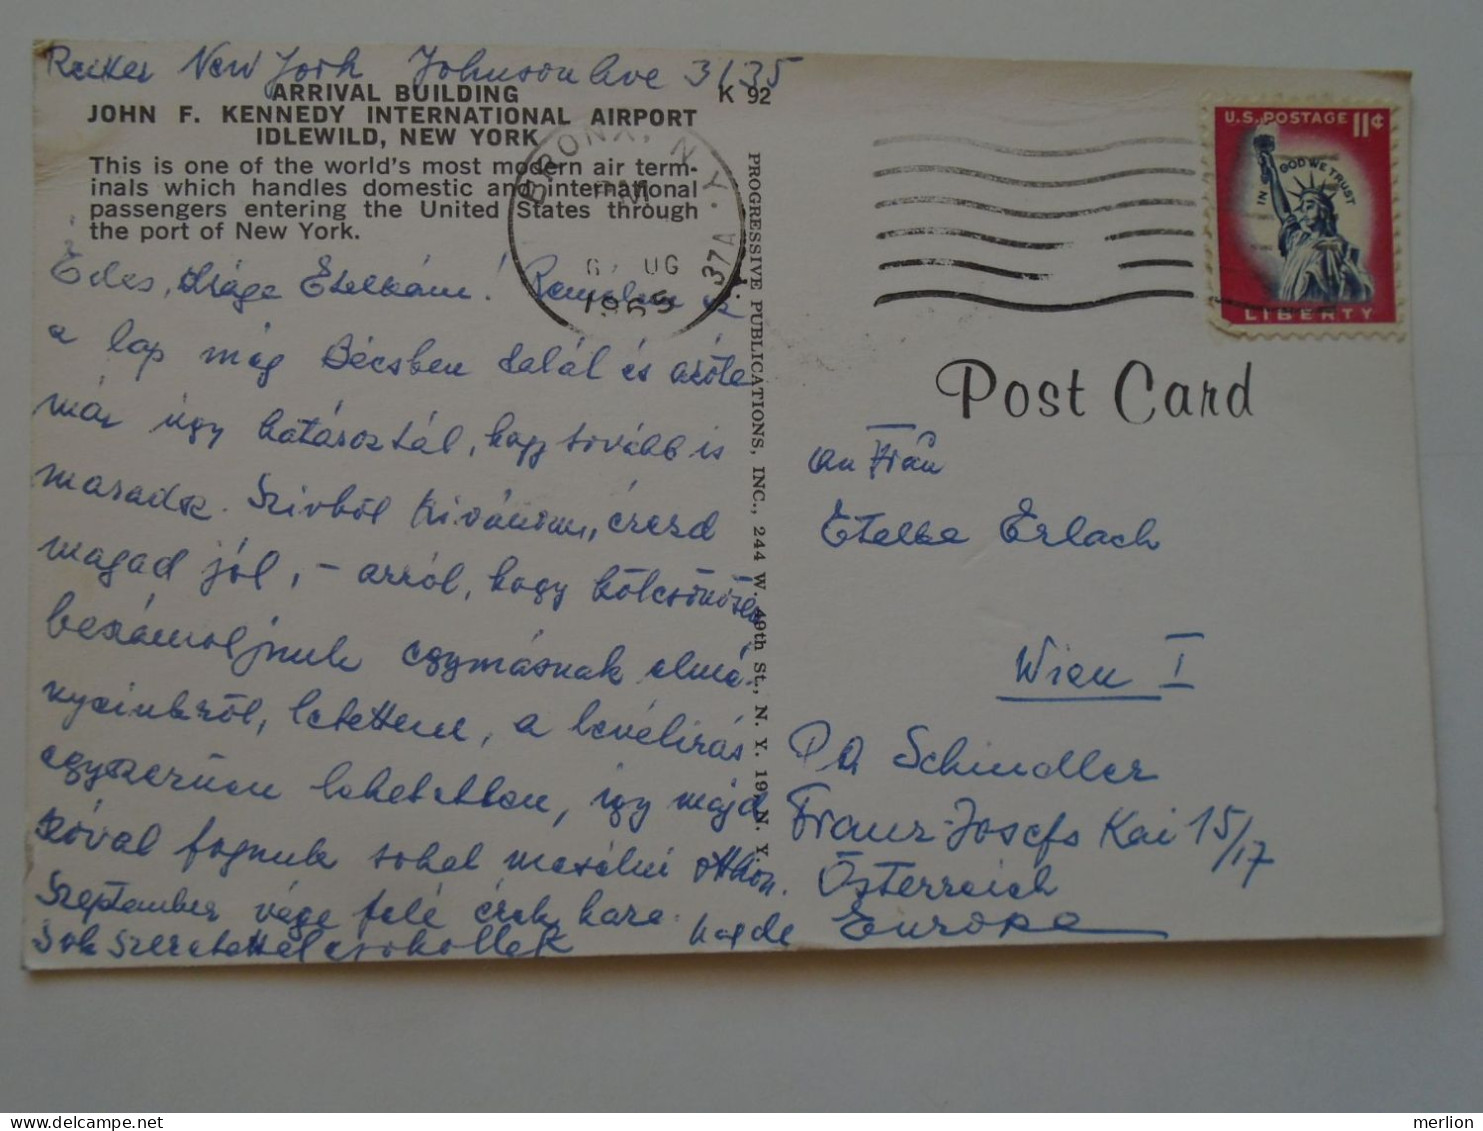 Reiter New York Johnson Ave 3135
ARRIVAL BUILDING
K 92
JOHN F. KENNEDY INTERNATIONAL AIRPORT
IDLEWILD, NEW YORK
This is one of the world's most modern air term-
inals which handles domestic and international
passengers entering the United States through
the port of New York.
Édes, drága Etelkám! Remélem ez
a lap még Bécsben talál és azóta
már úgy határoztál, hogy tovább is
maradsz. Szivből kivánom, érezd
magad jól, - arról, hogy kölcsönösen
beszámoljunk egymásnak élmé-
nyeinkről, letettem, a levélirás
egyszerüen lehetetlen, igy majd
szóval fognunk sokat mesélni otthon.
Szeptember vége felé érek haza.
Sok szeretettel csókollak
BRONX, N.Y.
PM
UG
1965
37A
PROGRESSIVE PUBLICATIONS, INC., 244 W. 49th St., N. Y. 19, N. Y.
U.S. POSTAGE 11¢
IN GOD WE TRUST
LIBERTY
Post Card
An Frau
Etelka Erlach
Wien I
Schindler
Franz-Josefs Kai 15/17
Österreich
Europe
merlion